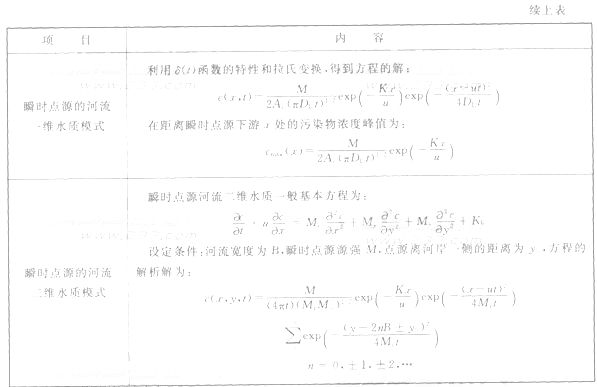 续上表
项 目 内 容
瞬时点源的河流一维水质模式
利用 δ(t)函数的特性和拉氏变换,得到方程的解:
c(x,t)= M / 2A (πD t) exp(-Kx/u) exp(-(x-ut)² / 4D t)
在距离瞬时点源下游 x 处的污染物浓度峰值为:
(x)= M / 2A (πD t) exp(-Kx/u)
瞬时点源的河流二维水质模式
瞬时点源河流二维水质一般基本方程为:
∂c/∂t u ∂c/∂x = M ∂²c/∂x² + M ∂²c/∂y² + M ∂²c/∂y² + K
设定条件:河流宽度为 B,瞬时点源源强 M,点源离河岸一侧的距离为 y ,方程的
解析解为:
c(x,y,t)= M / (4πt)(M M ) exp(-Kx/u) exp(-(x-ut)² / 4M t)
∑exp(-(y-2nB±y )² / 4M t)
n = 0,±1,±2,…